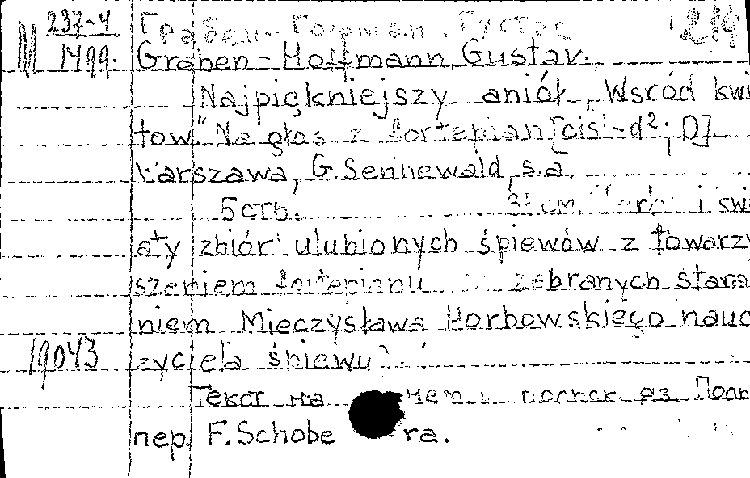 237-4 Грабен-Гофман, Густав 219
М 1499. Graben-Hoffmann, Gustav.
Najpiękniejszy anioł „Wśród kwi
tow" Na głos z fortepian [cis¹-d²; D]
Warszawa, G. Sennewald, s.a.
5 стb. см. i sw
aty zbiór ulubionych śpiewów z towarzy
szeniem fortepianu zebranych stara
niem Mieczysława Horbowskiego nauc
19043 zyciela śpiewu
Текст на нем и польск яз. Поль
пер. F. Schobe ra.